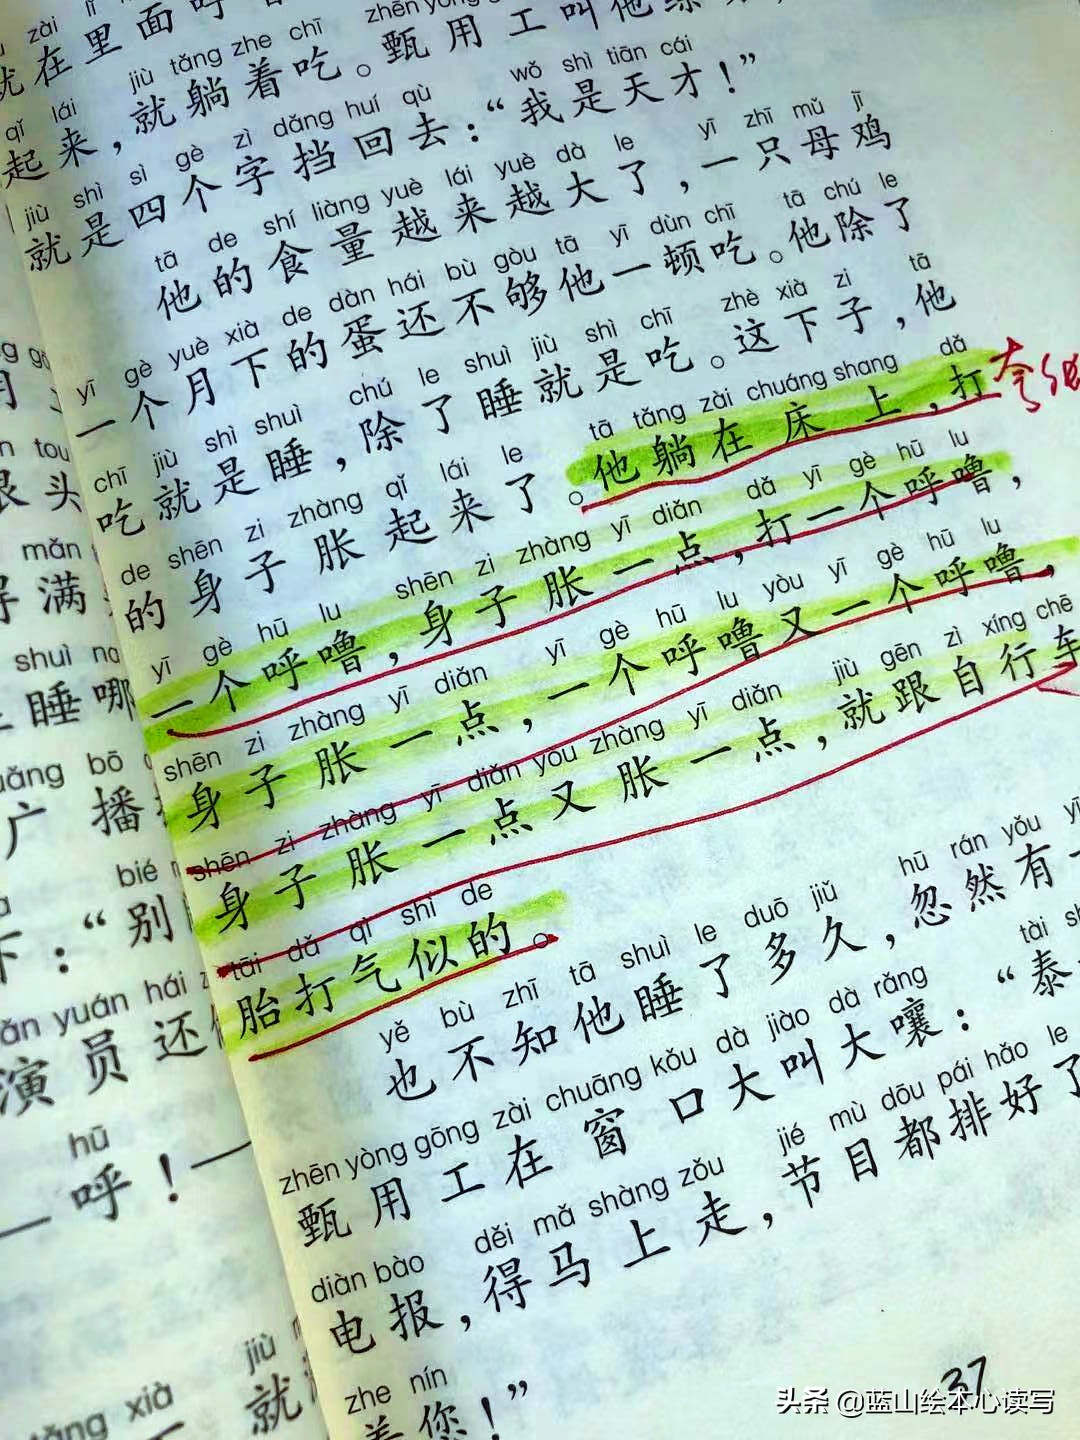 在里面呼
jiù tǎng zhe chī zhēn yòng gōng
起来，就躺着吃。甄用工叫他练
jiù shì sì gè zì dǎng huí qù wǒ shì tiān cái
就是四个字挡回去：“我是天才！”
tā de shí liàng yuè lái yuè dà le yī zhī mǔ jī
他的食量越来越大了，一只母鸡
yī gè yuè xià de dàn hái bù gòu tā yī dùn chī tā chú le
一个月下的蛋还不够他一顿吃。他除了
chī jiù shì shuì chú le shuì jiù shì chī zhè xià zi tā
吃就是睡，除了睡就是吃。这下子，他
de shēn zi zhàng qǐ lái le tā tǎng zài chuáng shang dǎ
的身子胀起来了。他躺在床上，打
yī gè hū lu shēn zi zhàng yī diǎn dǎ yī gè hū lu
一个呼噜，身子胀一点，打一个呼噜，
shēn zi zhàng yī diǎn yī gè hū lu yòu yī gè hū lu
身子胀一点，一个呼噜又一个呼噜，
shēn zi zhàng yī diǎn yòu zhàng yī diǎn jiù gēn zì xíng chē
身子胀一点又胀一点，就跟自行车
tāi dǎ qì shì de
胎打气似的。
yě bù zhī tā shuì le duō jiǔ hū rán yǒu yī
也不知他睡了多久，忽然有一
zhēn yòng gōng zài chuāng kǒu dà jiào dà rǎng tài
甄用工在窗口大叫大嚷：“泰
diàn bào děi mǎ shàng zǒu jié mù dōu pái hǎo le
电报，得马上走，节目都排好了
zhe nín
着您！”
37
头条 @蓝山绘本心读写
跟头
mǎn
好满
shuì
睡哪
bō
广播
bié
下：“别
yǎn yuán hái
演员还
hū
呼！—
xià jiù
就